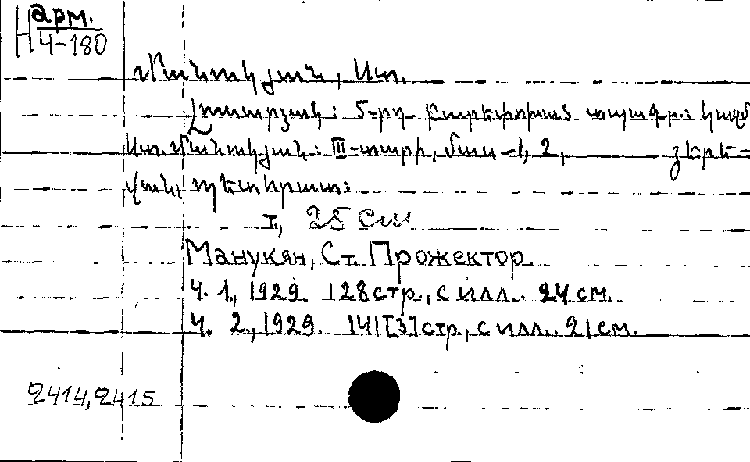 Н арм.
4-180
Մանուկյան, Ստ.
Լուսարձակ: 5-րդ բարեփոխած տպագր. կազմ
Ստ. Մանուկյան: III-տարի, մաս -1, 2, Յերե-
վան, Պետհրատ:
I, 25 см
Манукян, Ст. Прожектор
ч. 1, 1929 128 стр., с илл. 24 см.
ч. 2, 1929. 141[3] стр, с илл. 21 см.
2414, 2415